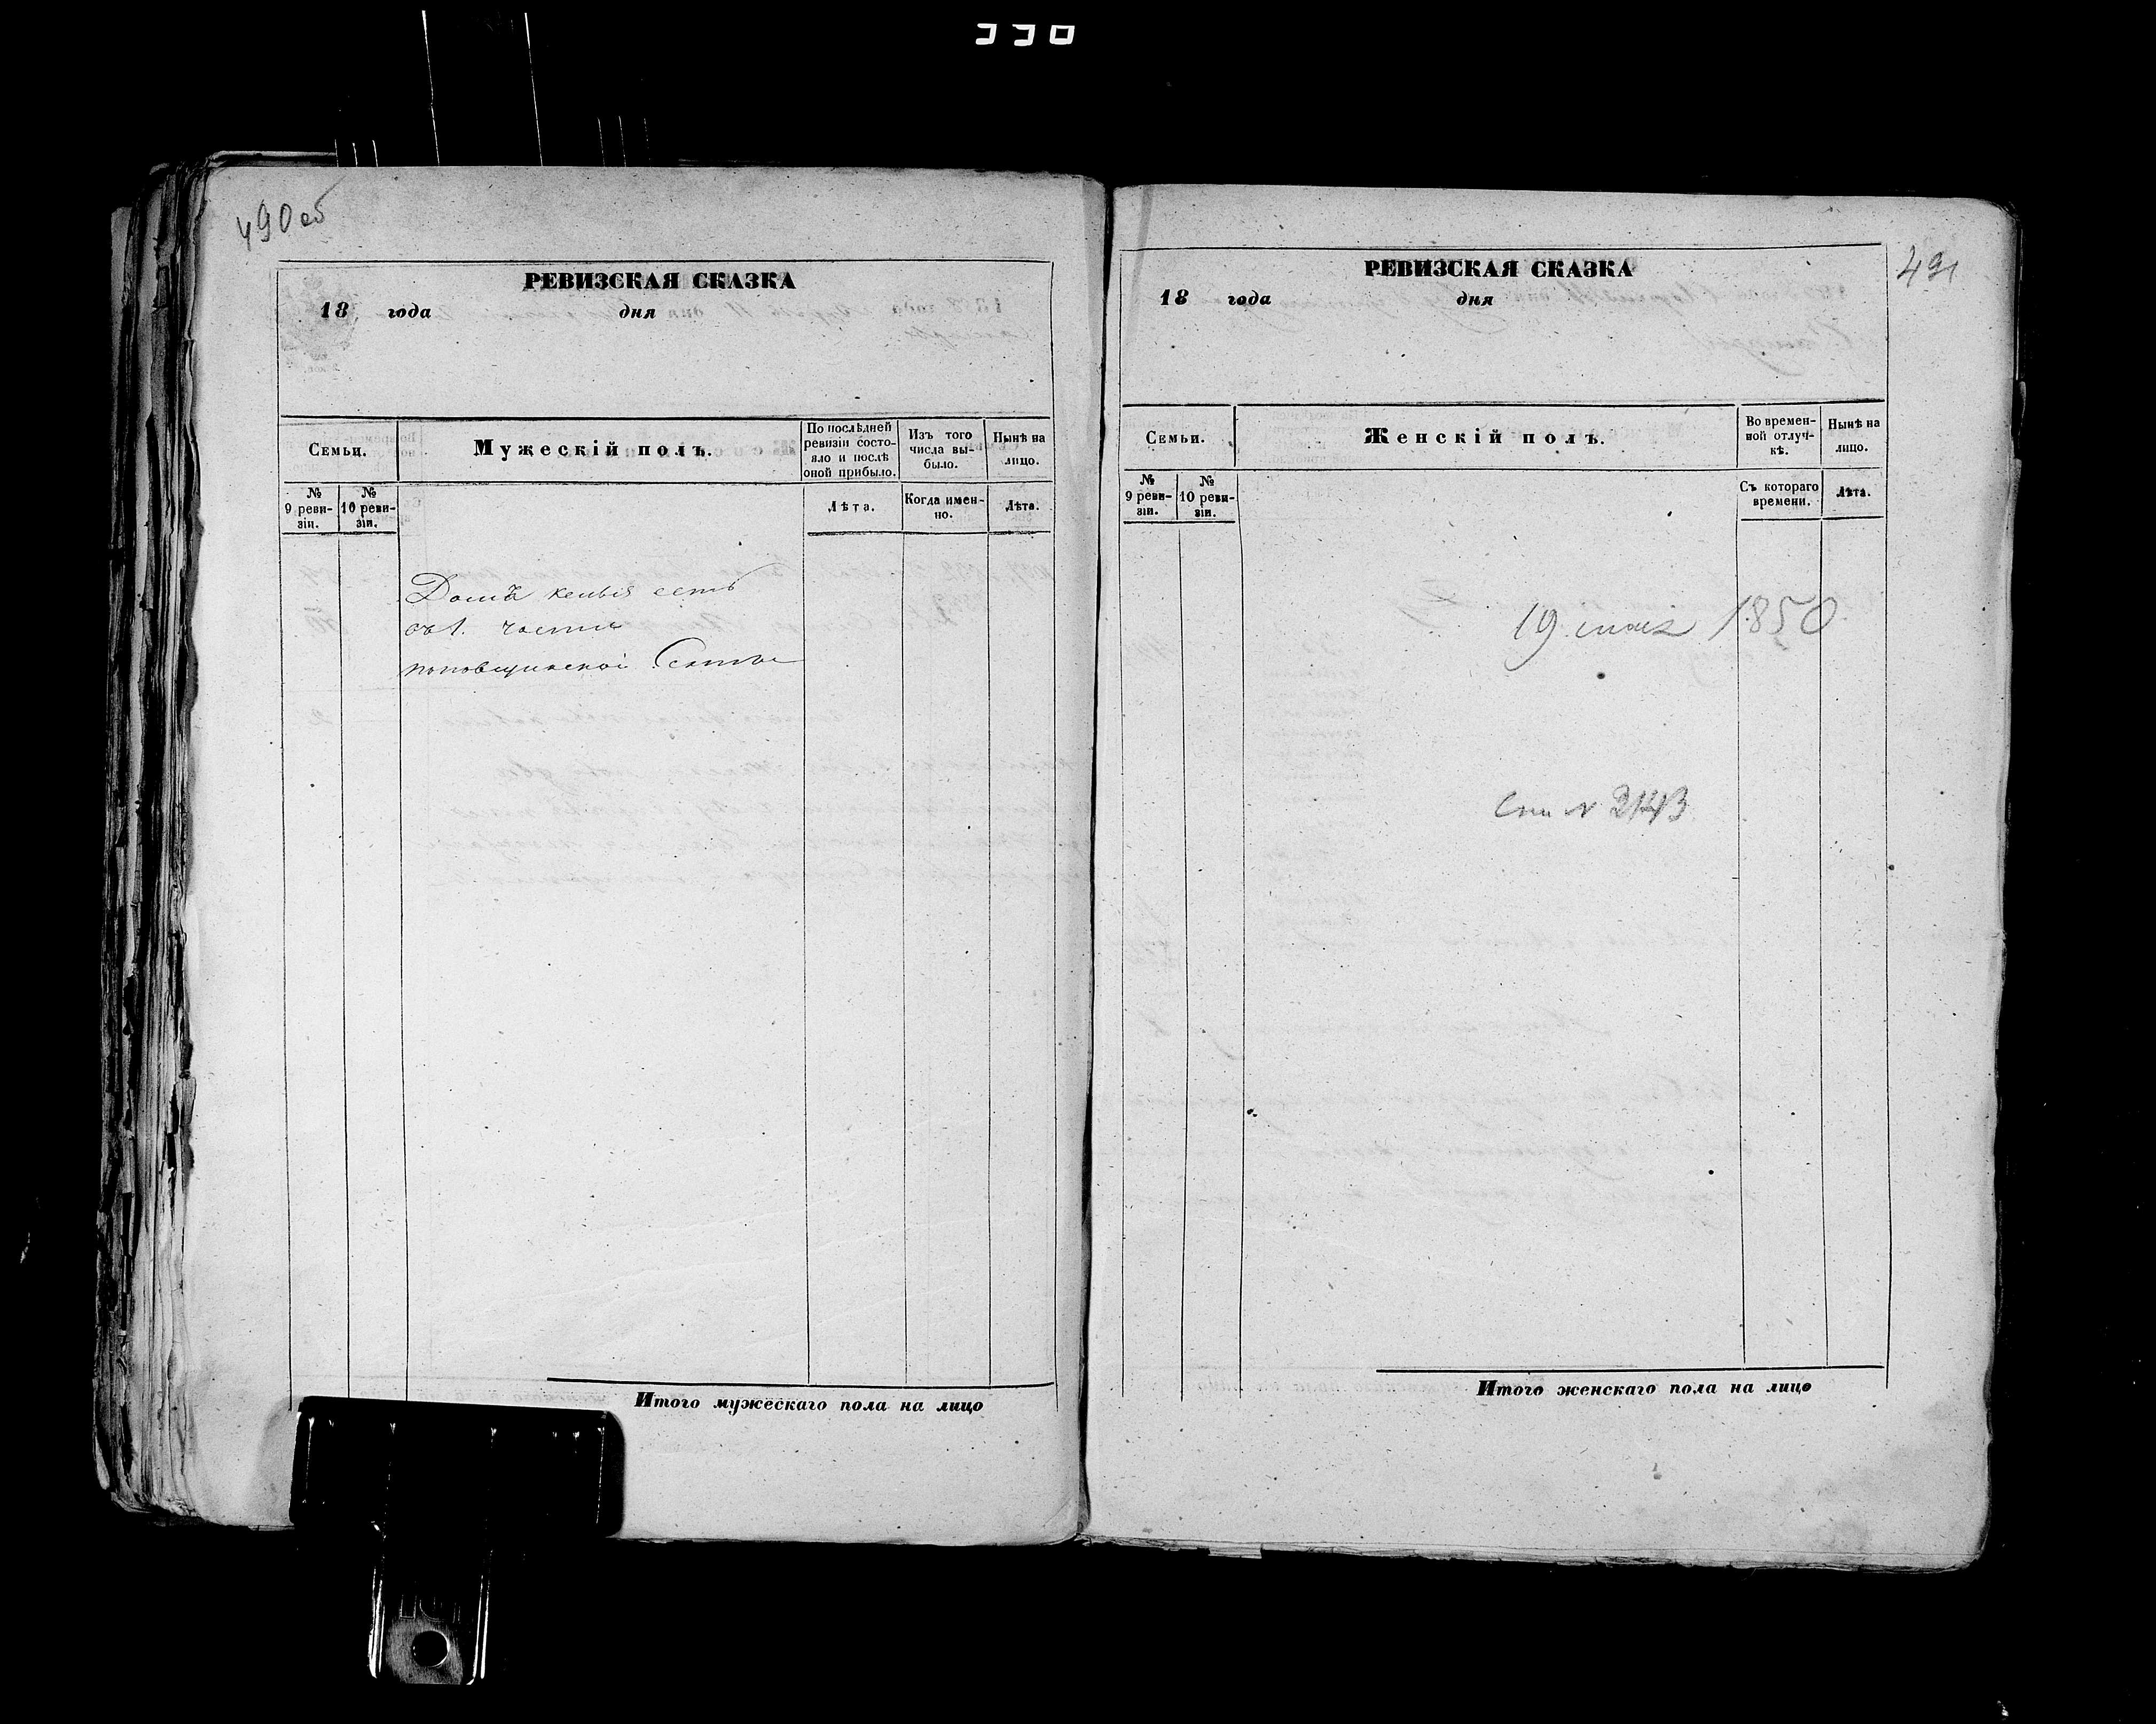 490об
РЕВИЗСКАЯ СКАЗКА
18 года дня
Семьи.
Мужескій полъ.
По послѣдней ревизіи состояло и послѣ оной прибыло.
Изъ того числа выбыло.
Нынѣ на лицо.
№ 9 ревизіи.
№ 10 ревизіи.
Лѣта.
Когда именно.
Лѣта.
Домъ
въ 1. части
поповщинской Секты
Итого мужескаго пола на лицо
491
РЕВИЗСКАЯ СКАЗКА
18 года дня
Семьи.
Женскій полъ.
Во временной отлучкѣ.
Нынѣ на лицо.
№ 9 ревизіи.
№ 10 ревизіи.
Съ котораго времени.
Лѣта.
19 1850
N 2143
Итого женскаго пола на лицо